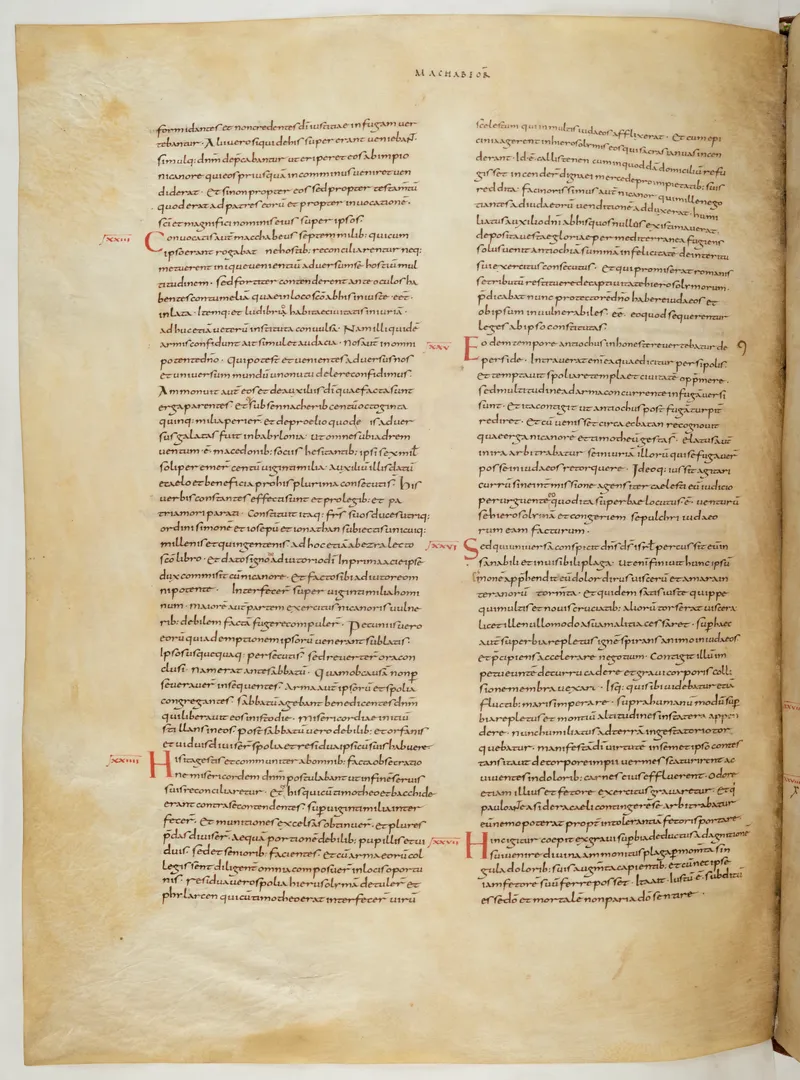 MACHABEOR̄
formidantes et non credentes dī iustitiae in fugam uer
tebantur · Alii uero si quid eis supererant uendebant
simulq: dn̄m depcabantur ut eriperet eos ab impio
nicanore qui eos priusquā in comminus ueniret uen
diderat · Et si non propter eos sed propter testamtū
quod erat ad patres eorū et propter inuocationē
sc̄i et magnifici nominis eius super ipsos ·
XXIII Conuocatis aut̄ macchabeus septem milib: qui cum
ipso erant rogabat ne hostib: reconciliarentur neq:
metuerent inique uenientiū aduersum se hostiū mul
titudinem · sed fortiter contenderent ante oculos ha
bentes contumeliā quae in loco sc̄o ab his iniuste eēt
inlata · Itemq: et ludibrii habitae ciuitatis iniuriā ·
adhuc etiā ueterū instituta conuulsa · Nam illi quidē
armis confidunt ait simul et audacia · nos aut̄ in omni
potente dn̄o · qui potest et uenientes aduersus nos
et uniuersum mundū uno nutu delere confidimus ·
Ammonuit aut̄ eos et de auxiliis dī quae facta sunt
erga parentes · et sub sennacherib centū octoginta
quinq: milia perier̄ et de proelio quod eis aduer
sus galatas fuit in babylonia · ut omnes ubi ad rem
uentum ē macedonib: sociis hesitantib: ipsi sex mil
soli peremer̄ centū uiginti milia · Auxiliū illis datū
et caelo et beneficia pro his plurima consecuti s̄ · His
uerbis constantes effecti sunt et pro legib: et pa
tria mori parati · Constituit itaq: fr̄s suos duces utriq:
ordini simonē et iosepū et ionathan subiectis unicuiq:
millenis et quingentenis ad hoc etiā ab ezra lecto
sc̄o libro · Et dato signo adiutorii dī In prima acie ipse
dux commisit cū nicanore · Et facto sibi adiutore om
nipotente · Interfecer̄ super uiginti milia homi
num · maiorē aut̄ partem exercitus nicanoris uulne
rib: debilem factā fugere compuler̄ · Pecuniis uero
eorū qui ad emptionem ipsorū uenerant sublatis ·
Ipsos usquequaq: persecuti s̄ · sed reuerter̄ ora con
clusi · nam erat ante sabbatū · Quam ob causā non p̄
seuerauer̄ insequentes · Arma aut̄ ipsorū et spolia
congregantes · sabbatū agebant benedicentes dn̄m
qui liberauit eos in isto die · misericordiae initiū
stillans in eos · Post sabbatū uero debilib: et orfanis
et uiduis diuiser̄ spolia et residua ipsi cū suis habuere
XXIIII His itaq: gestis et communiter ab omnib: facta obsecratio
ne misericordem dn̄m postulabant ut in finē seruis
suis reconciliaretur · Et ex his qui cū timotheo et bacchide
erant contra se contendentes · sup̄ uiginti milia inter
fecer̄ · Et munitiones excelsas obtinuer̄ · et plures
p̄das diuiser̄ · Aequā portionē debilib: pupillis et ui
duis · sed et seniorib: facientes · Et cū arma eorū col
legissent diligent̄ omnia composuer̄ in locis oportu
nis · residua uero spolia hierusolymā detuler̄ et
phylarcen qui cū timotheo erat interfecer̄ uirū
scelestum qui in multis iudaeos afflixerat · Et cum epi
nicia agerent in hierosolymis eos qui sacras ianuas incen
derant · Id ē callistenen cum in quoddā domiciliū refu
gisset incender̄ digna ei mercede pro impietatib: suis
reddita · facinorosissimus aut̄ nicanor qui mille nego
tiantes ad iudaeorū uenditionē adduxerat · humi
liatus auxilio dn̄i ab his quos nullos existimauerat ·
deposita ueste gloriae per mediterranea fugiens
solus uenit antiochiā summā infelicitatē de interitu
sui exercitus consecutus · Et qui promiserat romanis
se tributū restituere de captiuitate hierosolymorum ·
p̄dicabat nunc protectorē dn̄o habere iudaeos et
ob ipsum inuulnerabiles eē · eo quod sequerentur
leges ab ipso constitutas ·
XXV Eodem tempore antiochus inhoneste reuertebatur de
perside · Intrauerat enim ea quae dicitur persipolis
et temptauit spoliare templa et ciuitatē opp̄mere ·
sed multitudine ad arma concurrente in fugā uersi
sunt · Et ita contigit ut antiochus post fugā turpit̄
rediret · Et cū uenisset circa ecbatan recognouit
quae erga nicanorē et timotheū gesta s̄ · Elatus aut̄
in ira arbitrabatur se iniuriā illorū qui se fugauer̄
posse in iudaeos retorquere · Ideoq: iussit agitari
currū sine intmissione agens iter caelesti eū iudicio
perurguente eo quod ita superbae locutus ē uenturū
se hierosolymā et congeriem sepulchri iudaeo
rum eam facturum ·
XXVI Sed qui uniuersa conspicit dn̄s dī isrl̄ percussit eū in
sanabili et inuisibili plaga · Ut enī finiuit hunc ipsū
sermonē app̄hendit eū dolor dirus uiscerū et amara in
teranorū tormta · Et quidem satis iuste quippe
qui multis et nouis cruciatib: aliorū torserat uiscera
licet ille nullo modo a sua malitia cessaret · sup̄ haec
aut̄ superbia repletus ignē spirans animo in iudaeos
et p̄cipiens accelerare negotium · Contigit illum in
petu euntē de curru cadere et graui corporis colli
sione membra uexari · Isq: qui sibi uidebatur etiā
fluctib: maris imperare · supra humanū modū sup̄
bia repletus et montiū altitudines in statera appen
dere · nunc humiliatus ad terrā in gestatorio por
quebatur · manifestā dī uirtutē in semet ipso contes
tans ita ut de corpore impii uermes scaturirent ac
uiuentes in dolorib: carnes eius effluerent · Odore
etiam illius et fetore exercitus grauaretur · Et q̄
paulo ante a sidera caeli contingere se arbitrabatur
eū nemo poterat propt̄ intolerantiā fetoris portare
XXVII Hinc igitur coepit ex graui sup̄bia deductus ad agnitionē
sui uenire diuina ammonitus plaga p̄ momta sin
gula dolorib: suis augmta capientib: et cū nec ipse
iam fetorē suū ferre posset · Ita ait · Iustū ē subditū
esse dō et mortalē non paria dō sentire ·